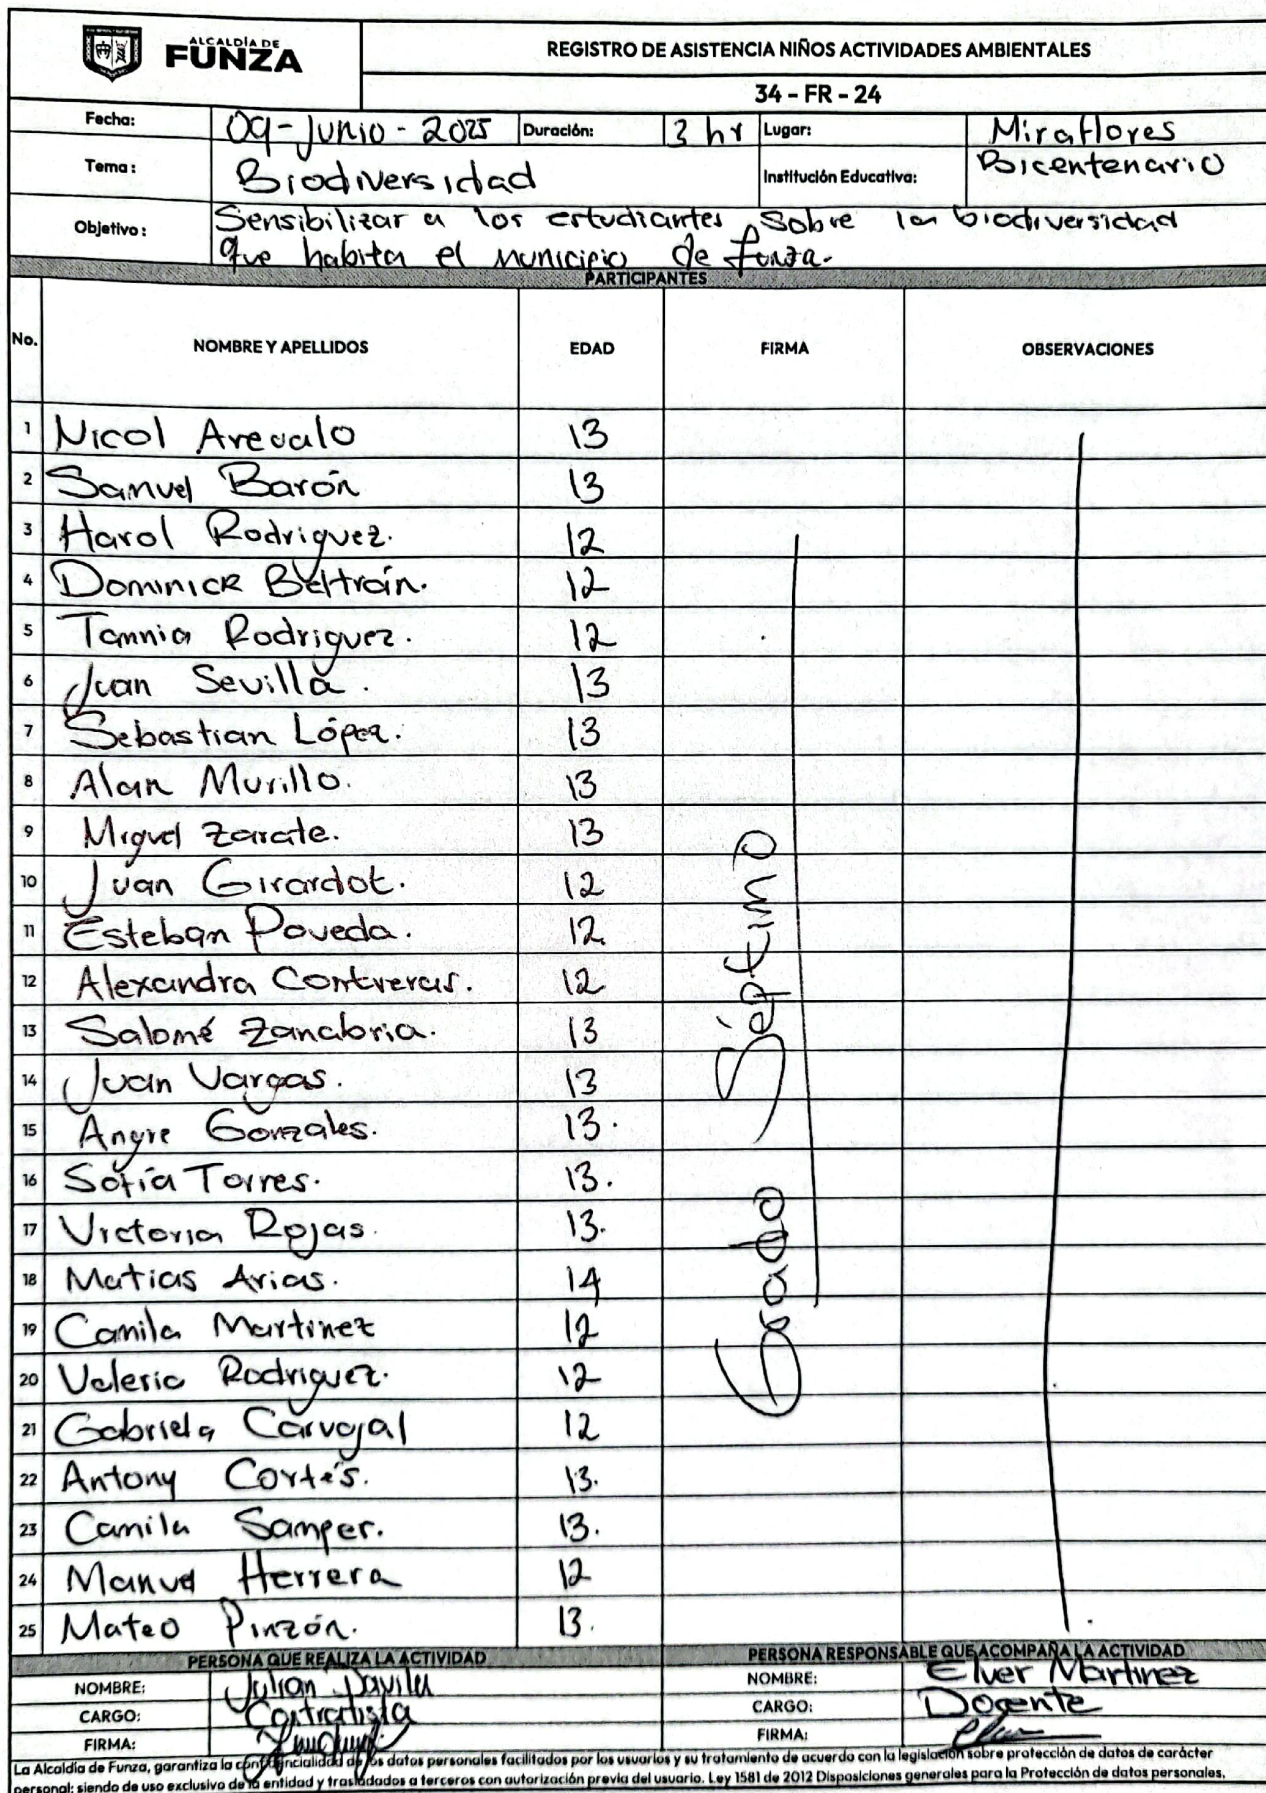 ALCALDÍA DE
FUNZA
REGISTRO DE ASISTENCIA NIÑOS ACTIVIDADES AMBIENTALES
34 - FR - 24
Fecha: 09-Junio-2025 Duración: 3 hr Lugar: Miraflores
Tema: Biodiversidad Institución Educativa: Bicentenario
Objetivo: Sensibilizar a los estudiantes sobre la biodiversidad
que habita el municipio de funza.
PARTICIPANTES
No. NOMBRE Y APELLIDOS EDAD FIRMA OBSERVACIONES
1 Nicol Arevalo 13
2 Samuel Barón 13
3 Harol Rodriguez. 12
4 Dominick Beltrán. 12
5 Tannia Rodriguez. 12
6 Juan Sevilla. 13
7 Sebastian López. 13
8 Alan Murillo. 13
9 Miguel Zarate. 13
10 Juan Girardot. 12
11 Esteban Poveda. 12
12 Alexandra Contreras. 12
13 Salomé Zanabria. 13
14 Juan Vargas. 13
15 Angie Gonzales. 13.
16 Sofía Torres. 13.
17 Victoria Rojas. 13.
18 Matias Arias. 14
19 Camila Martinez 12
20 Valeria Rodriguez. 12
21 Gabriela Carvajal 12
22 Antony Cortés. 13.
23 Camila Samper. 13.
24 Manuel Herrera 12
25 Mateo Pinzón. 13.
Grado Séptimo
PERSONA QUE REALIZA LA ACTIVIDAD PERSONA RESPONSABLE QUE ACOMPAÑA LA ACTIVIDAD
NOMBRE: Julian Davila NOMBRE: Elver Martinez
CARGO: Contratista CARGO: Docente
FIRMA: FIRMA:
La Alcaldía de Funza, garantiza la confidencialidad de los datos personales facilitados por los usuarios y su tratamiento de acuerdo con la legislación sobre protección de datos de carácter
personal; siendo de uso exclusivo de la entidad y trasladados a terceros con autorización previa del usuario. Ley 1581 de 2012 Disposiciones generales para la Protección de datos personales.